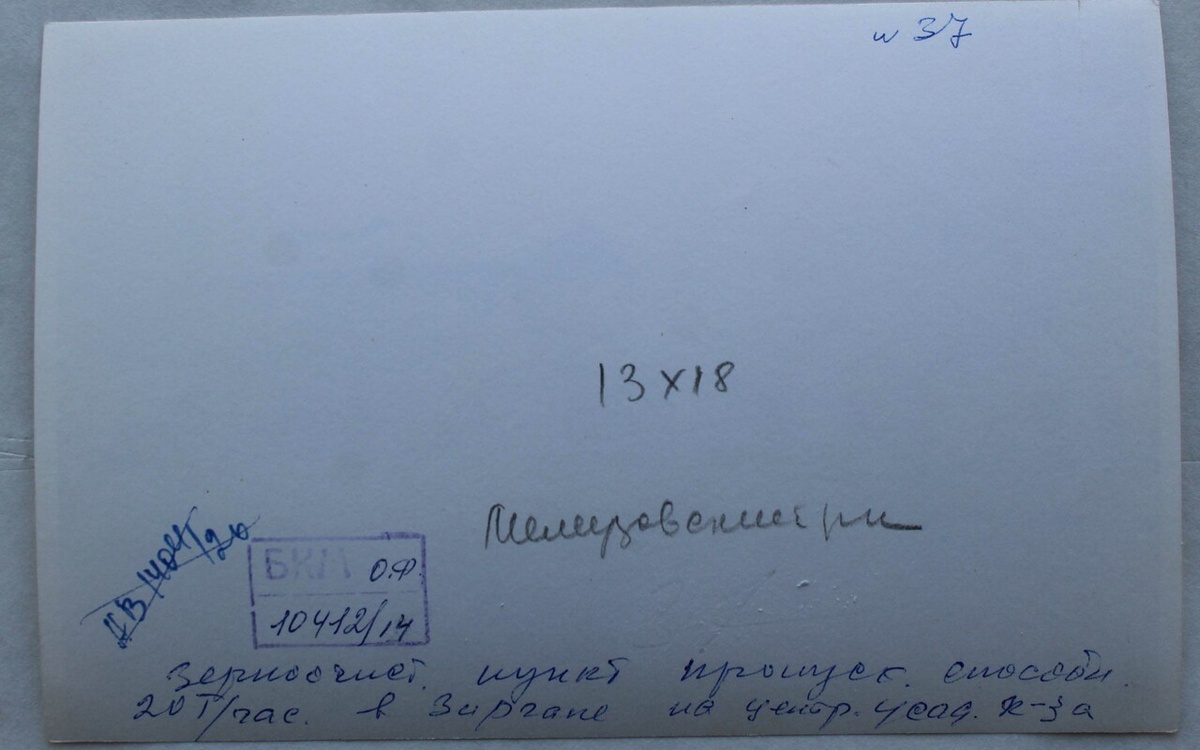 н 37
13х18
Мелеузовский р-н
НВ 1404/20
БКМ О.Ф.
10412/14
Зерноочист. пункт пропуск. способн.
20 т/час. в Зиргане на центр. усад. к-за